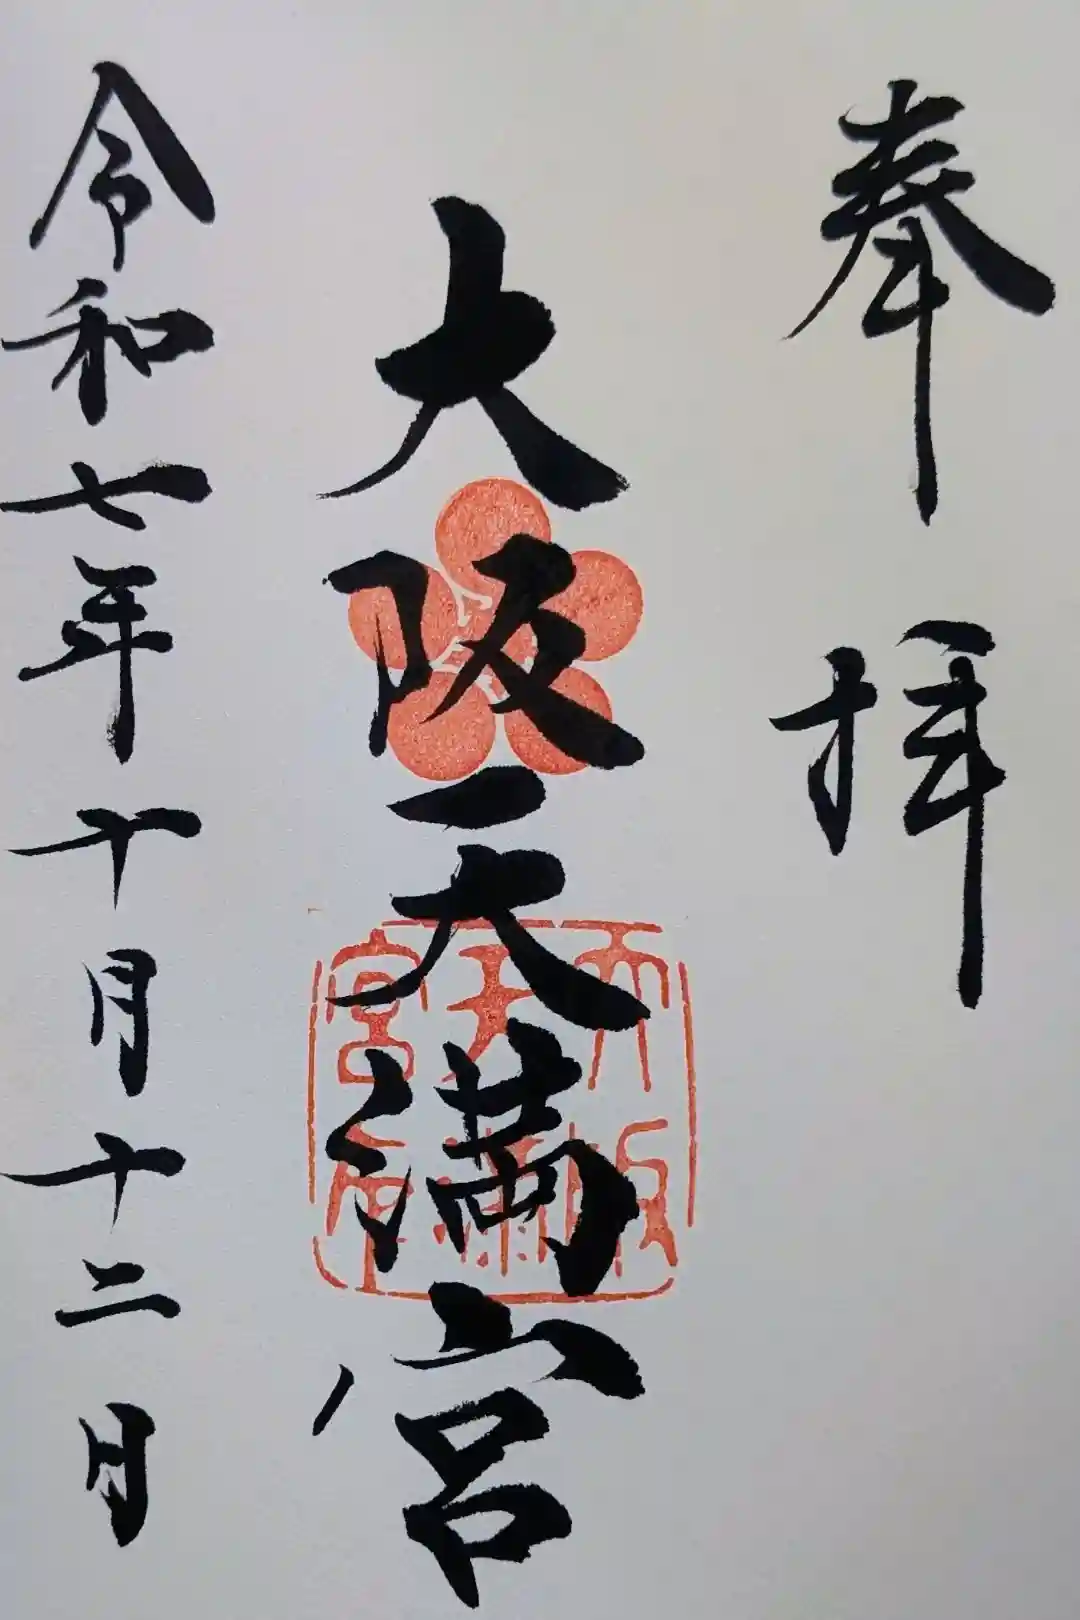 奉拝
大阪天満宮
大阪天満宮
令和七年十月十二日